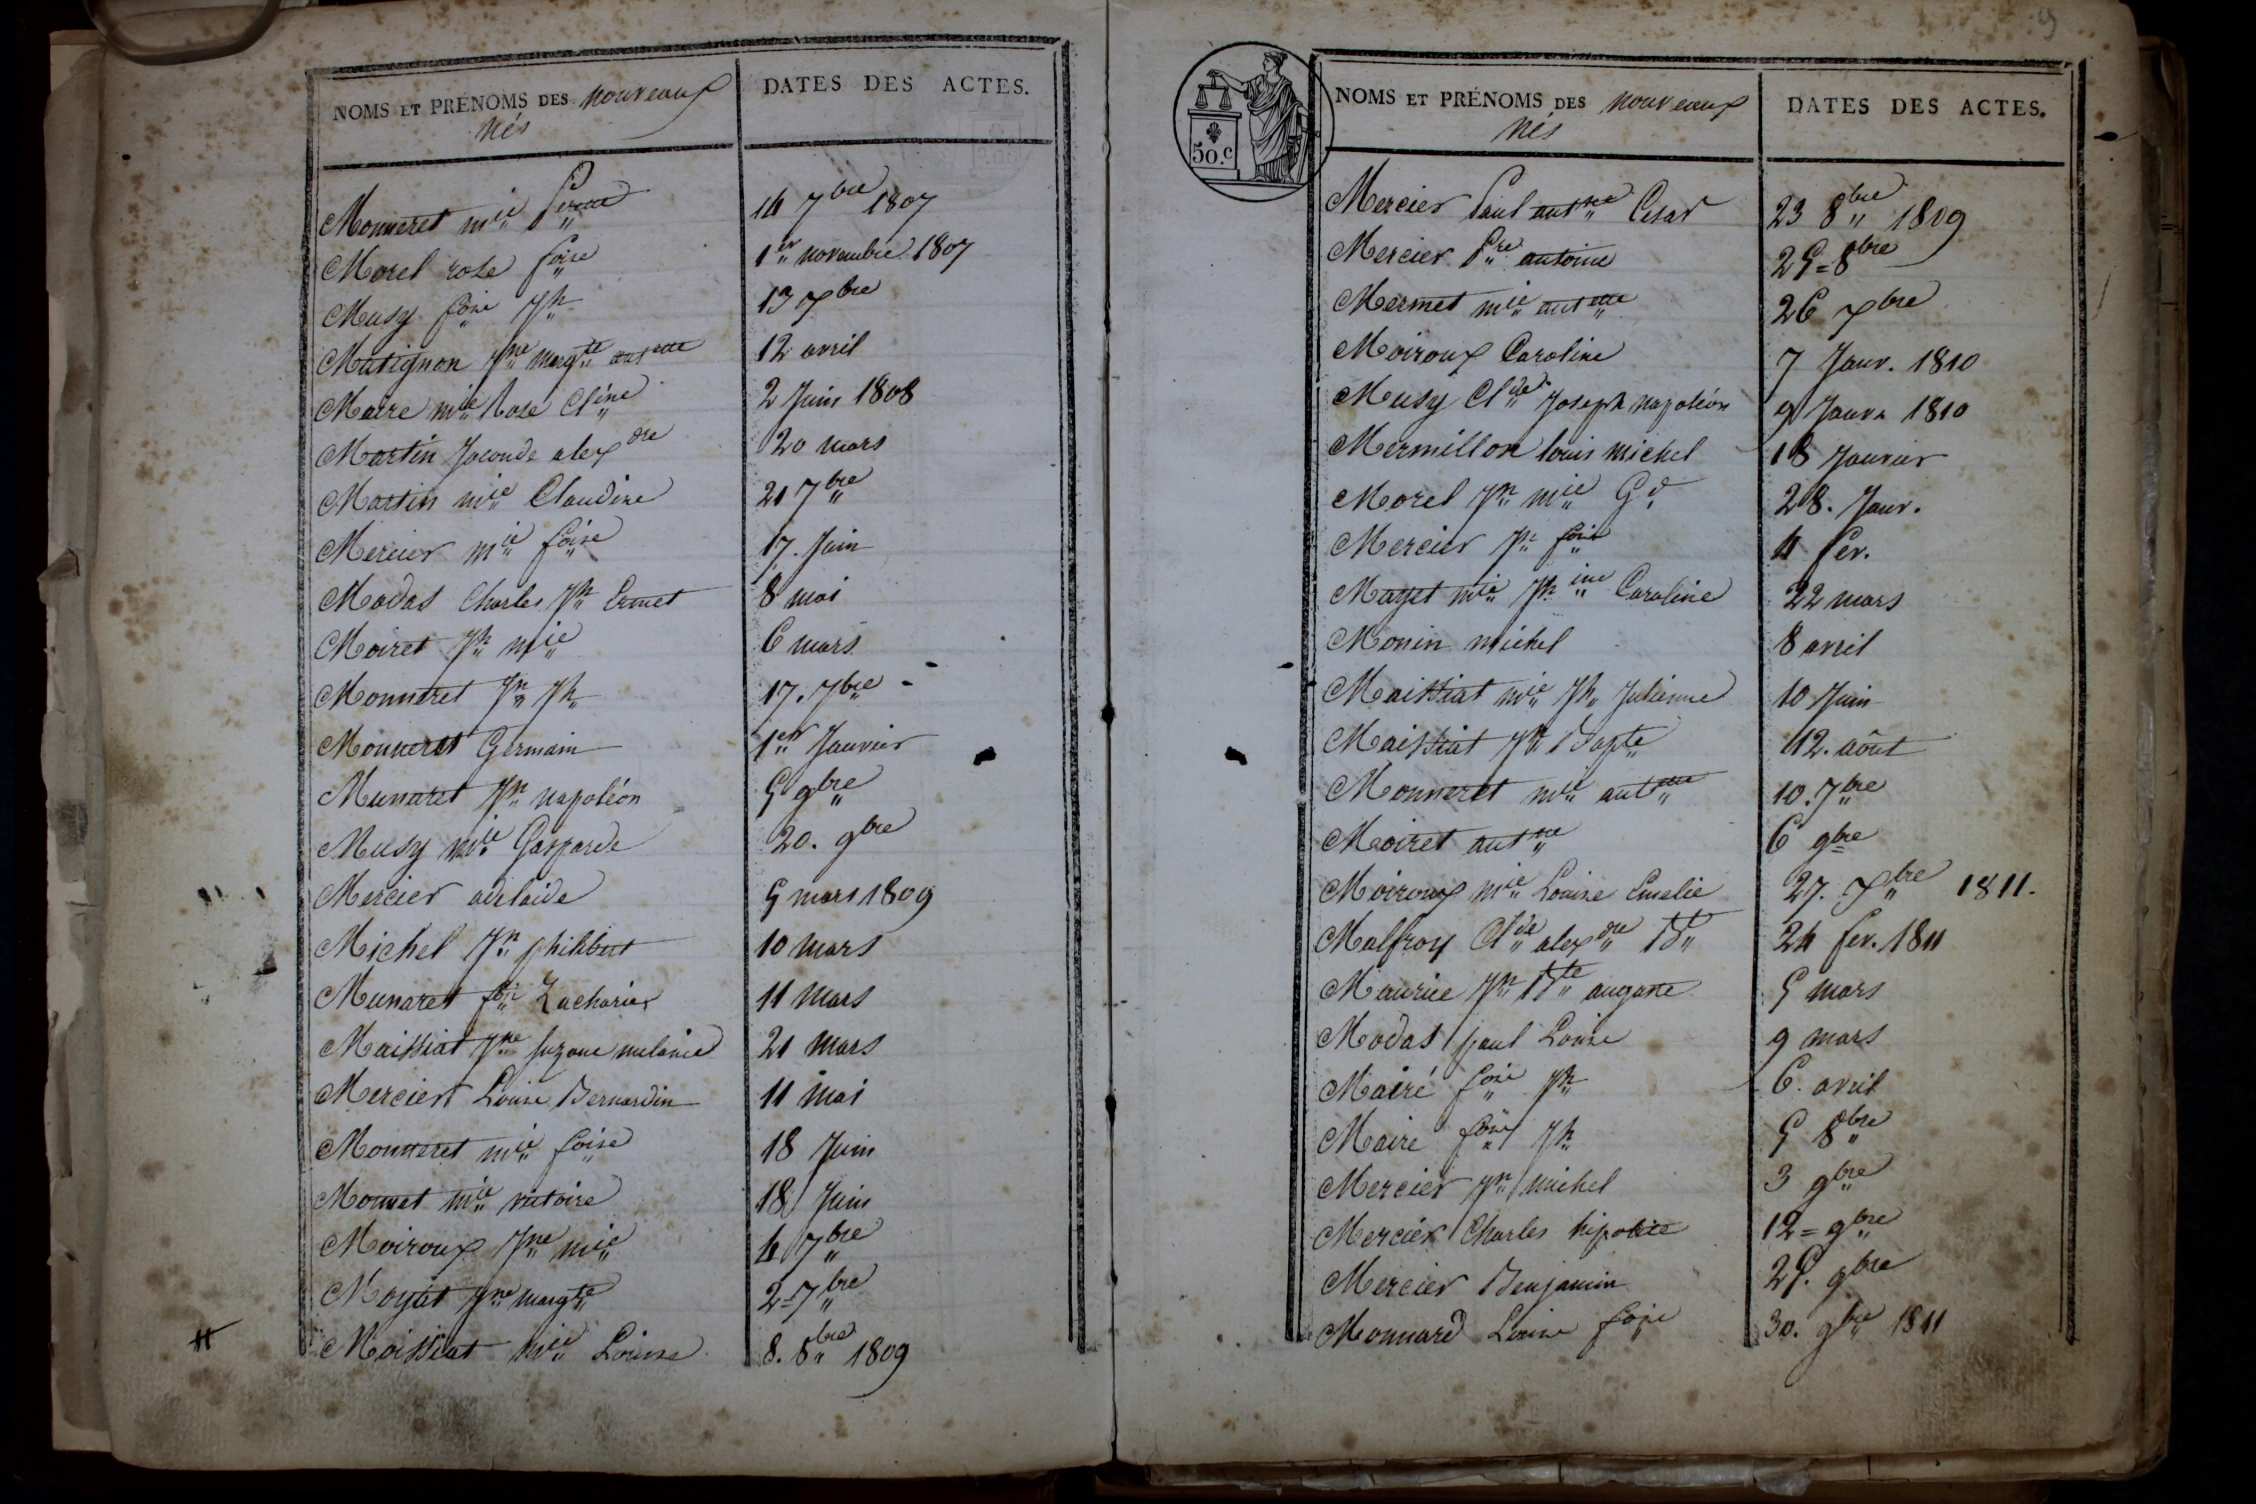 NOMS ET PRÉNOMS DES nouveaux nés
DATES DES ACTES.
Monneret mie Perrette 14 7bre 1807
Morel rose foise 1er novembre 1807
Musy fois Jh 13 Xbre
Matignon Jne margte antette 12 avril
Maire mie Rose Cline 2 Juin 1808
Martin Joconde alexdre 20 mars
Martin mie Claudine 21 7bre
Mercier mie foise 17. Juin
Modas Charles Jh Ermet 8 mai
Moiret Jh mie 6 mars
Monneret Jn Jh 17. 7bre
Monneret Germain 1er Janvier
Munaret Jn napoléon 5 9bre
Musy mie Gasparde 20. 9bre
Mercier adelaide 5 mars 1809
Michel Jn philibert 10 mars
Munaret foi Zacharie 11 mars
Maissiat Jne suzane melanie 21 mars
Mercier Louise Bernardin 11 mai
Monneret mie foise 18 Juin
Monnet mie victoire 18 Juin
Moiroux Jne mie 4 7bre
Moyat Jne margte 2=7bre
Moissiat mie Louise 8. 8bre 1809
9
50.c
NOMS ET PRÉNOMS DES nouveaux nés
DATES DES ACTES.
Mercier Paul antne Cesar 23 8bre 1809
Mercier Pre antoine 25=8bre
Mermet mie antette 26 Xbre
Moiroux Caroline 7 Janv. 1810
Musy Clde Joseph napoléon 9 Janv. 1810
Mermillon louis michel 18 Janvier
Morel Jn mie Gd 28. Janv.
Mercier Jn fois 4 fev.
Mayet mie Jhine Caroline 22 mars
Monin michel 8 avril
Maissiat mie Jh Julienne 10 Juin
Maissiat Jn Bapte 12. août
Monneret mie antette 10. 7bre
Moiret antne 6 9bre
Moiroux mie Louise Emelie 27. Xbre 1811.
Malfroy Clde alexdre Bte 24 fev. 1811
Maurice Jn Bte auguste 5 mars
Modas paul Louise 9 mars
Mairé fois Jh 6. avril
Maire fois Jh 5 8bre
Mercier Jn michel 3 9bre
Mercier Charles hipolite 12=9bre
Mercier Benjamin 25. 9bre
Monnard Louise foise 30. 9bre 1811